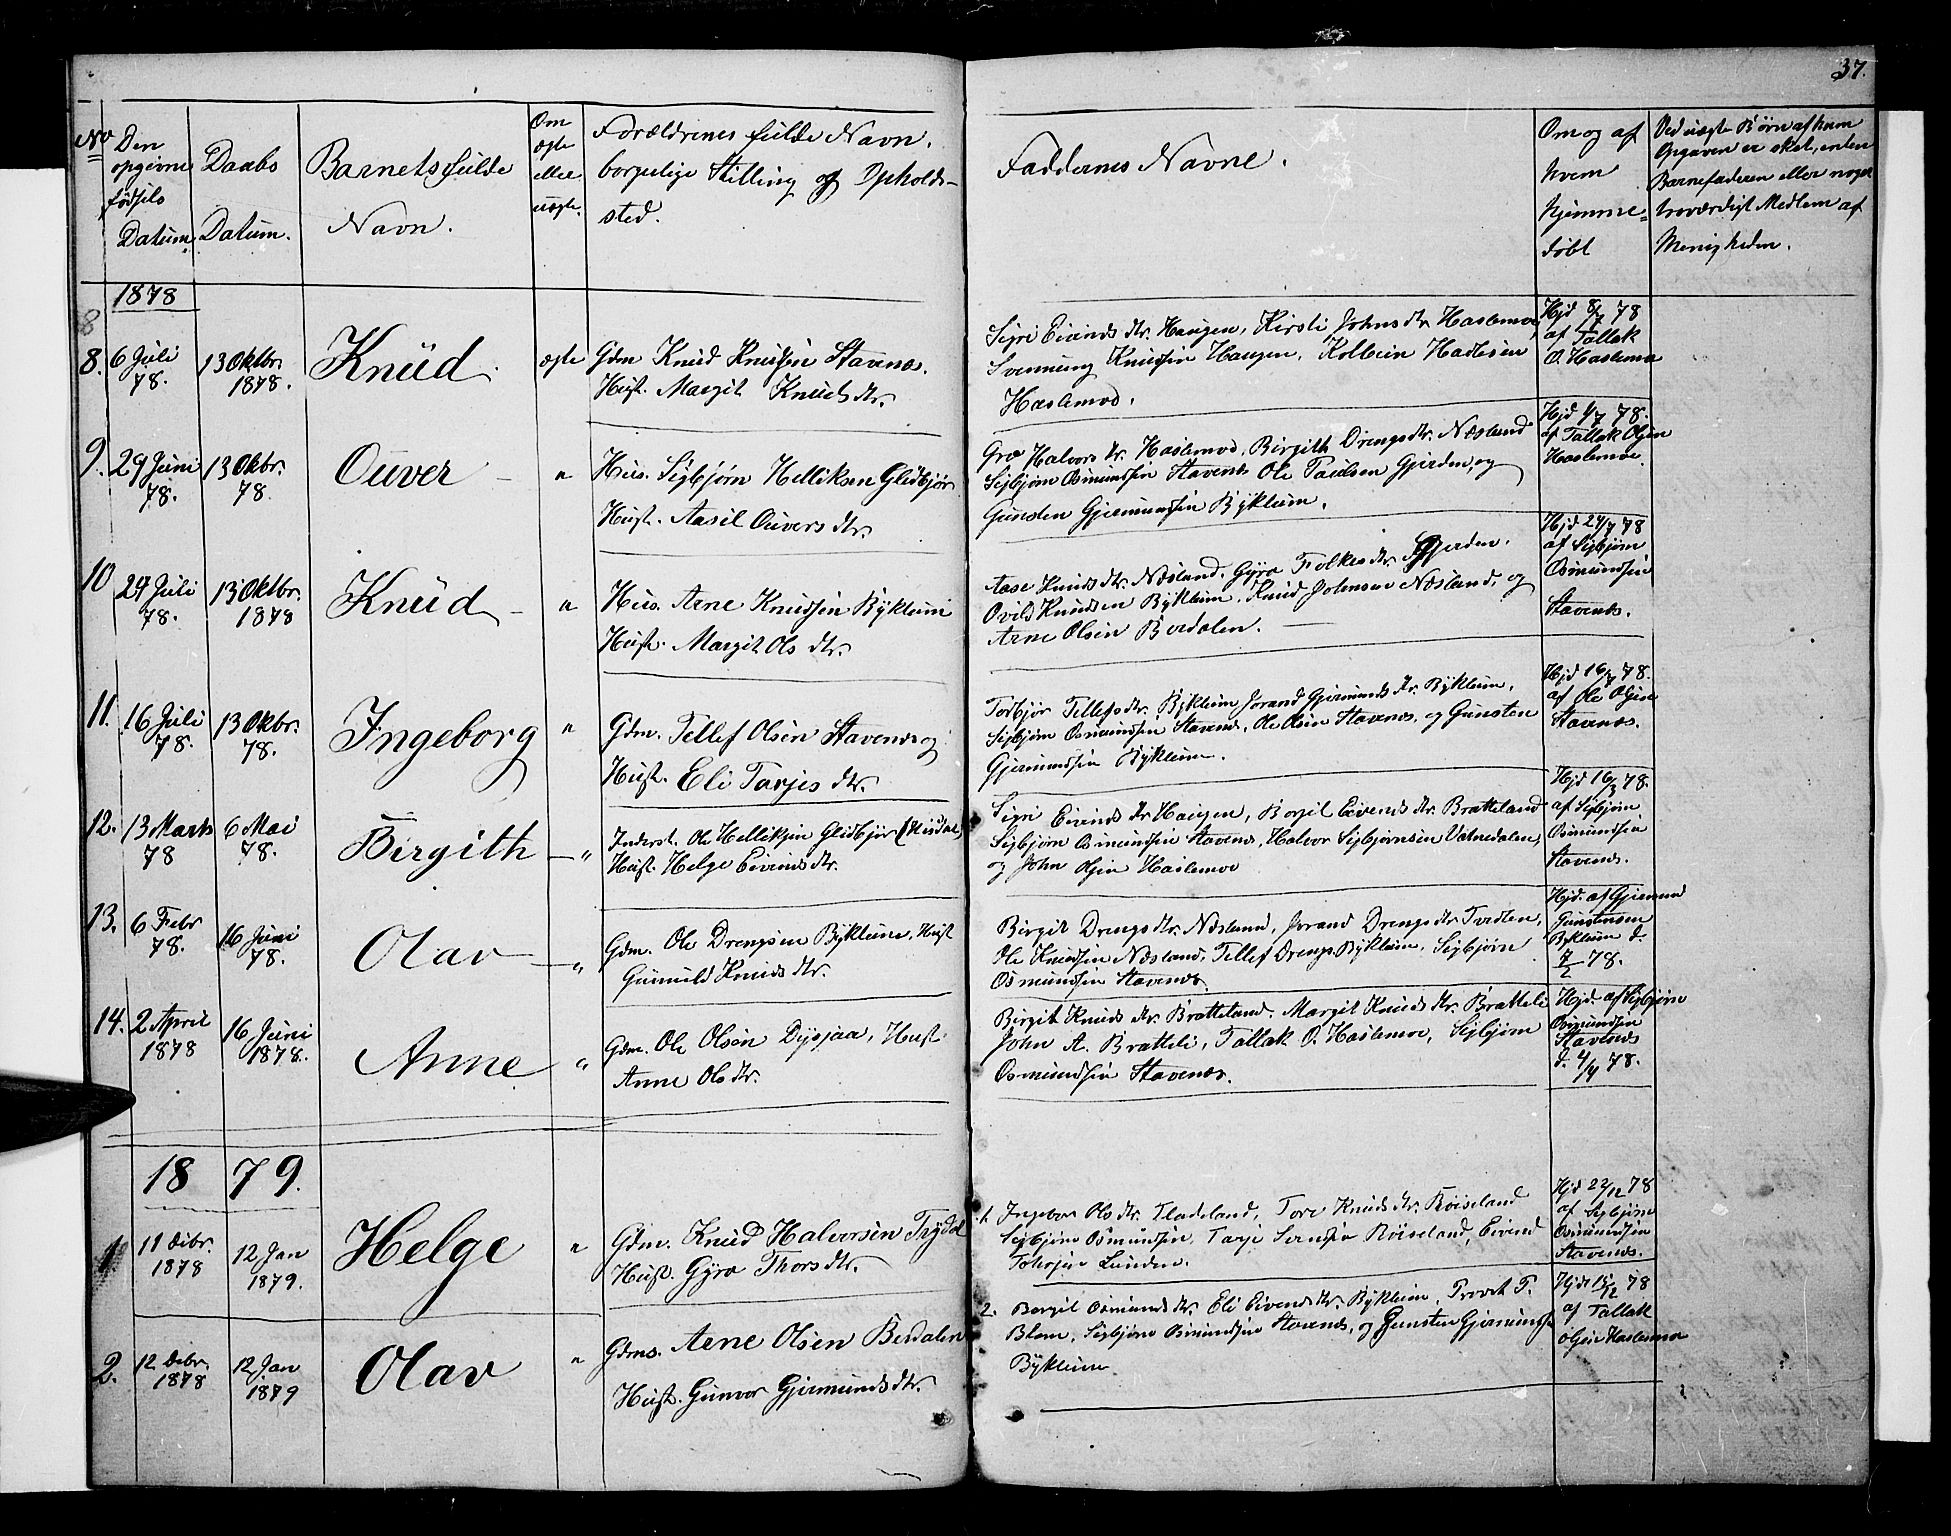 37.
No
Den opgivne fødsels Datum.
Daabs Datum.
Barnets fulde Navn.
Om ægte eller uægte.
Forældrenes fulde Navn, borgerlige Stilling og Opholds-
sted.
Faddernes Navne.
Om og af hvem hjemme=døbt
Ved uægte Børn af hvem Opgaven er sket, enten Barnefaderen eller noget troværdigt Medlem af Menigheden.
1878
8. 6 Juli 78. 13 Oktbr. 1878. Knud. ægte
Gdm Knud Knudsen Stavenæs.
Hust. Margit Knuds dtr.
Sigri Eivinds dtr. Haugen, Kirsti Johns dtr Haslemo,
Svennung Knudsen Haugen, Kolbein Hadlesen
Haslemod.
Hjd 8/7 78
af Tallak
O. Haslemo
9. 29 Juni 78. 13 Okbr. 78. Ouver - "
Hus. Sigbjørn Helliksen Glidbjør
Hust. Aasil Ouvers dtr.
Gro Halvors dr. Haslemod, Birgith Drengs dtr. Næsland
Sigbjørn Osmundsen Stavenes Ole Paulsen Gjerden, og
Gunden Gjermundsen Bykleum.
Hjd 4/7 78.
af Tallak Olsen
Haslemoe.
10 24 Juli 78. 13 Oktbr. 1878 Knud - "
Hus. Arne Knudsen Bykleum
Hust. Margit Ols dtr.
Aase Knuds dtr. Næsland, Gyro Folkes dtr. Gjerden.
Ovild Knudsen Bykleum. Knud Johnsen Næsland, og
Arne Olsen Berdalen.
Hjd 24/7 78
af Sigbjørn
Osmundsen
Stavenes.
11. 16 Juli 78. 13 Okbr. 78. Ingeborg "
Gdm. Tellef Olsen Stavenes og
Hust. Eli Tarjes dtr.
Torbjør Tellefs dtr. Bykleum Jorand Gjermunds dtr. Bykleum,
Sigbjørn Osmundsen Stavenes, Ole Olsen Stavenæs, og Gunsten
Gjermundsen Bykleum.
Hjd 16/7 78.
af Ole Olsen
Stavenæs.
12. 13 Marts 78 6 Mai 78. Birgith - "
Inderst. Ole Helliksen Glidbjør
Hust. Helge Eivinds dtr.
Sigri Eivinds dtr Haugen, Borgil Eivends dtr. Bratteland
Sigbjørn Osmundsen Stavenes, Halvor Sigbjørnsen Vatnedalen,
og John Olsen Haslemoe
Hjd 16/3 78.
af Sigbjørn
Osmundsen
Stavenes.
13. 6 Febr 78. 16 Juni 78. Olav - "
Gdm. Ole Drengsen Bykleum, Hust
Gunuld Knuds dtr.
Birgit Drengs dtr. Næsland, Jorand Drengs dtr. Tveiten,
Ole Knudsen Næsland, Tellef Drengs. Bykleum, Sigbjørn
Osmundsen Stavenes.
Hjd. af Gjermund
Gunstensen
Bykleum d.
7/2 78.
14. 2 April 1878 16 Juni 1878. Anne "
Gdm. Ole Olsen Dysjaa, Hust.
Anne Ols dtr.
Birgit Knuds dtr. Bratteland. Margit Knuds dtr. Bratteli
John A. Bratteli, Tallak O. Haslemoe, Sigbjørn
Osmundsen Stavenæs.
Hjd. af Sigbjørn
Osmundsen
Stavenes
d. 4/4 78.
1879.
1 11 Debr. 1878 12 Jan 1879. Helge "
Gdm. Knud Halvorsen Trydal
Hust. Gyro Thors dtr.
1. Ingebor Ols dtr. Fladeland, Tore Knuds dtr. Røiseland
Sigbjørn Osmundsen, Tarje Røiseland, Eivind
Lunden.
Hjd 22/12 78
af Sigbjørn
Osmundsen
Stavenes.
2. 12 Debr. 1878 12 Jan 1879 Olav "
Gdms. Arne Olsen Berdalen
Hust. Gunvor Gjermunds dtr.
2. Borgil Osmunds dtr. Eli Eivends dtr. Bykleum, Provst P.
Blom, Sigbjørn Osmundsen Stavenes, og Gunsten Gjermunds
Bykleum
Hjd 15/12 78
af Tallak
Olsen Haslemo